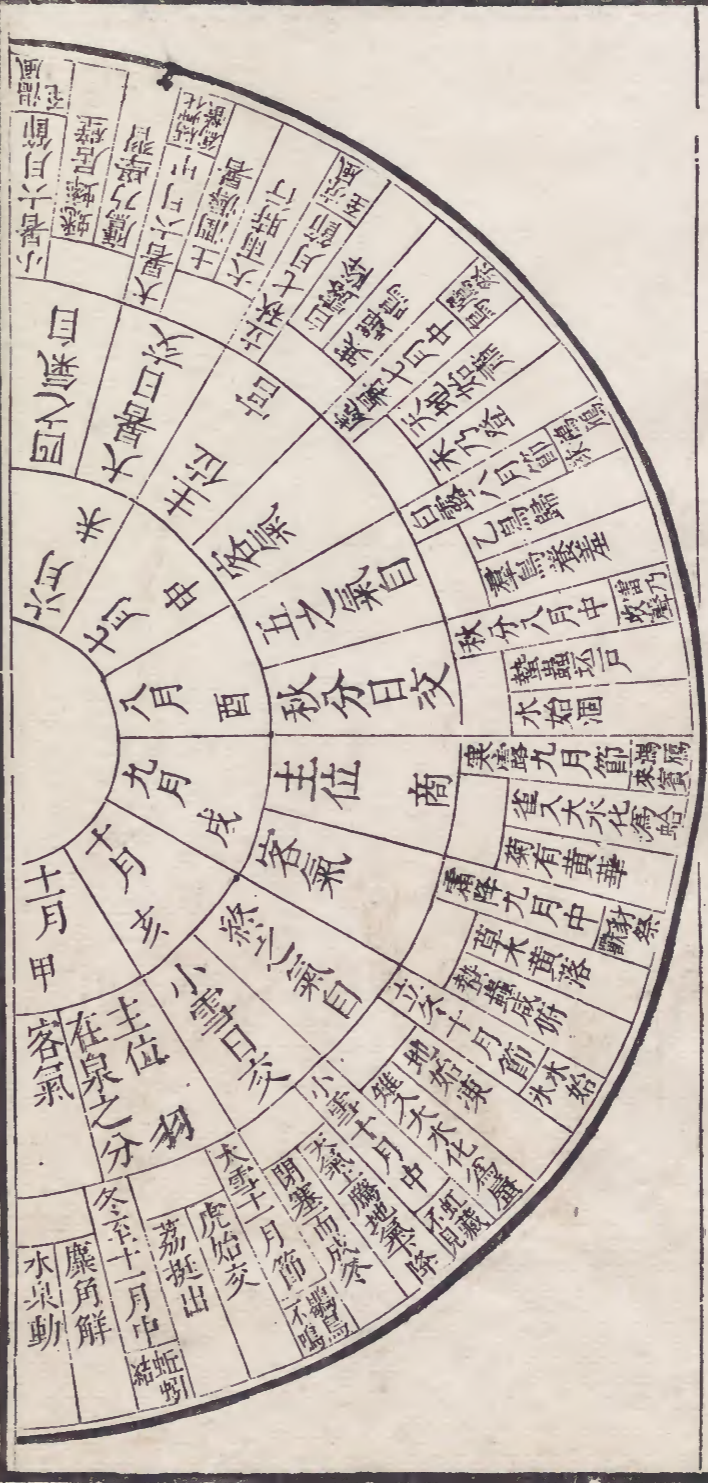 六月
未
七月
申
八月
酉
九月
戌
十月
亥
十一月
甲
四之氣自
大暑日交
主位
宮
客氣
五之氣自
秋分日交
主位
商
客氣
終之氣自
小雪日交
主位
在泉之分
羽
客氣
小暑六月節
溫風至
蟋蟀居壁
鷹乃學習
大暑六月中
土潤溽暑
大雨時行
立秋七月節
白露降
寒蟬鳴
處暑七月中
天地始肅
禾乃登
白露八月節
乙鳥歸
羣鳥養羞
秋分八月中
雷乃收聲
蟄蟲坯戶
水始涸
寒露九月節
鴻鴈來賓
雀入大水化爲蛤
菊有黄華
霜降九月中
豺祭獸
草木黄落
蟄蟲咸俯
立冬十月節
水始氷
地始凍
雉入大水化爲蜃
小雪十月中
虹藏不見
天氣上騰地氣下降
閉塞而成冬
大雪十一月節
鶡鳥不鳴
虎始交
荔挺出
冬至十一月中
蚯蚓結
麋角解
水泉動